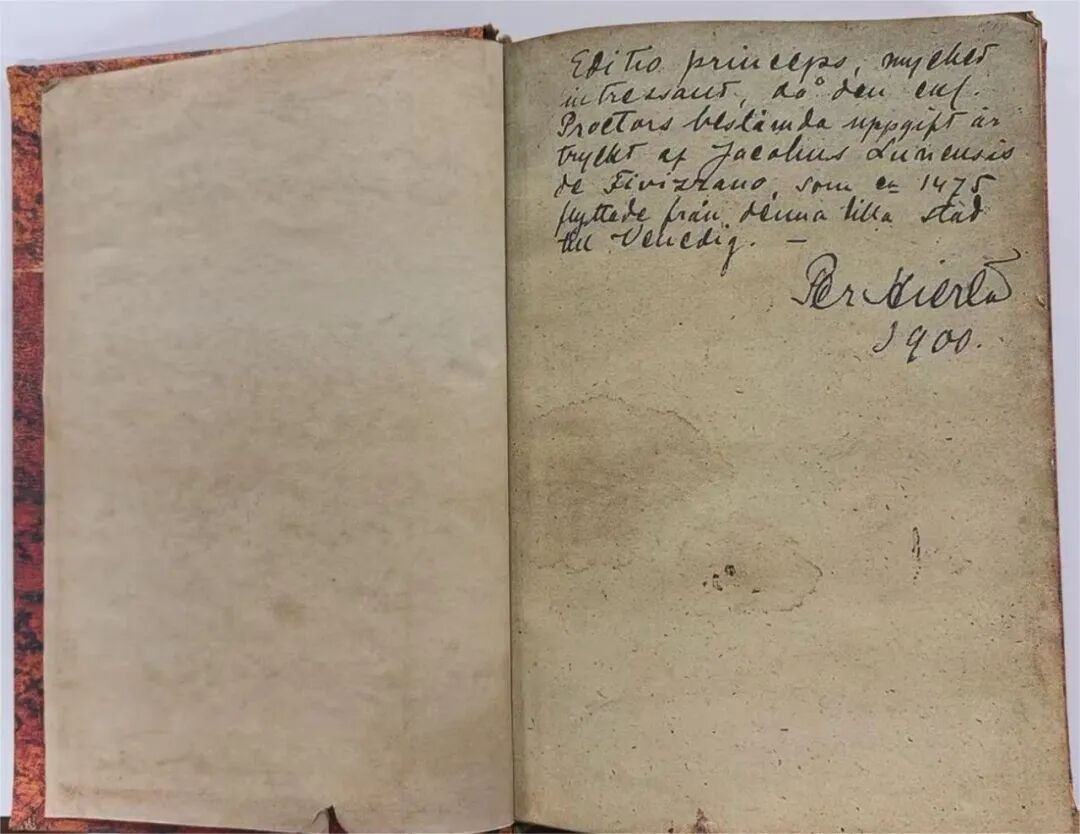 Editio princeps, mycket
intressant, då den enl.
Proctors bestämda uppgift är
tryckt af Jacobus Lunensis
de Fivizzano, som ca 1475
flyttade från denna lilla stad
till Venedig. —
Per Hierta
1900.